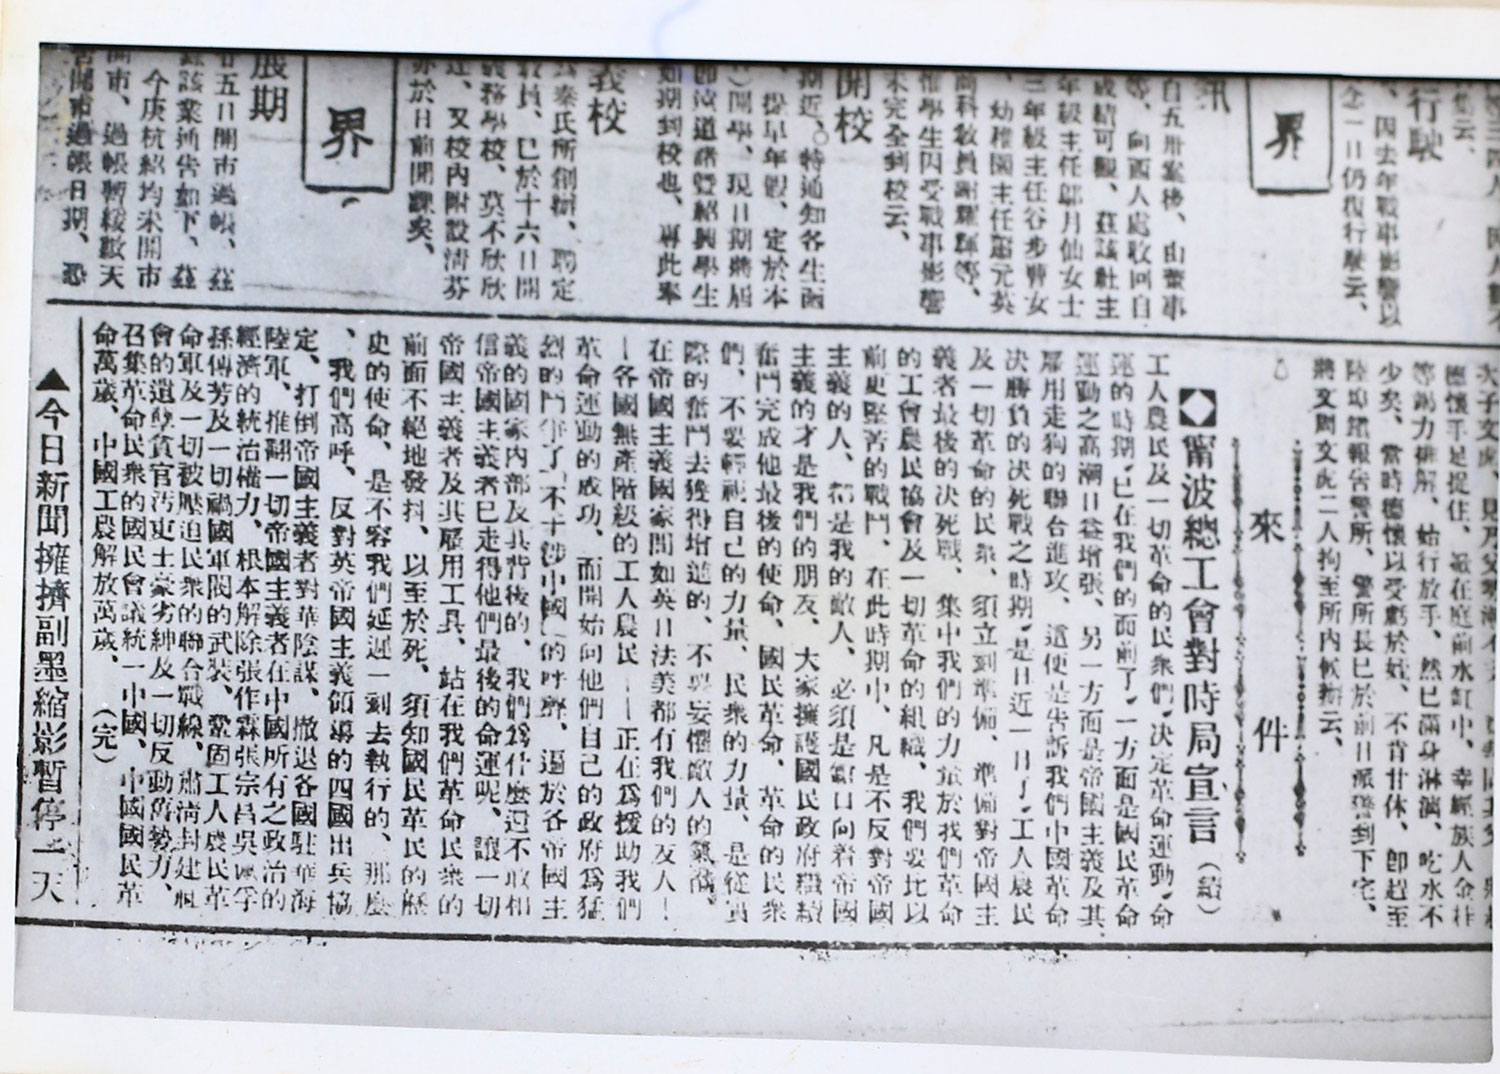 行駛
、因去年戰事影響以
今一日仍復行駛云、
界
訊
自五卅案後、由董事
等、向西人處收回自
成績可觀、茲該社主
年級主任鄔月仙女士
三年級主任谷步瞽女
、幼稚園主任
商科教員謝耀輝等、
惟學生因受戰事影響
未完全到校云、
開校
期近、特通知各生函
、提早年假、定於本
開學、現日期將屆
即滬道諸暨紹興學生
如期到校也、專此奉
義校
秦氏所創辦、聘定
教員、已於十六日開
義務學校、莫不欣欣
、又校內附設清芬
亦於日前開課矣、
界
展期
五日開市過帳、茲
該業通告如下、茲
今庚杭紹均未開市
開市、過帳暫緩數天
開市過帳日期、恐
應懷手足捉住、
在庭前水缸中、幸經族人金柱
等竭力排解、始行放手、然已滿身淋漓、吃水不
少矣、當時德懷以受虧於姪、不肯甘休、卽趕至
陸埠埧報告警所、警所長已於前日派警到下宅、
將文周文虎二人拘至所內候辦云、
來件
◆甯波總工會對時局宣言(續)
工人農民及一切革命的民衆們、决定革命運動、命
運的時期、已在我們的面前了、一方面是國民革命
運動之高潮日益增張、另一方面是帝國主義及其
雇用走狗的聯合進攻、這便是告訴我們中國革命
决勝負的决死戰之時期、是日近一日了、工人農民
及一切革命的民衆、須立到準備、準備對帝國主
義者最後的决死戰、集中我們的力量於我們革命
的工會農民協會及一切革命的組織、我們要比以
前更堅苦的戰鬥、在此時期中、凡是不反對帝國
主義的人、都是我的敵人、必須是
口向着帝國
主義的才是我們的朋友、大家擁護國民政府繼續
奮鬥完成他最後的使命、國民革命、革命的民衆
們、不要輕視自己的力量、民衆的力量、是從實
際的奮鬥去獲得增進的、不要妄懼敵人的氣
在帝國主義國家間如英日法美都有我們的友人—
—各國無產階級的工人農民——正在爲援助我們
革命運動的成功、而開始向他們自己的政府爲猛
烈的鬥爭了「不干涉中國」的呼聲、逼於各帝國主
義的國家內部及其背後的、我們爲什麼還不敢相
信帝國主義者已走得他們最後的命運呢、讓一切
帝國主義者及其雇用工具、站在我們革命民衆的
前面不絕地發抖、以至於死、須知國民革民的歷
史的使命、是不容我們延遲一刻去執行的、那麼
、我們高呼、反對英帝國主義領導的四國出兵協
定、打倒帝國主義者對華陰謀、撤退各國駐華海
陸軍、推翻一切帝國主義者在中國所有之政治的
經濟的統治權力、根本解除張作霖張宗昌吳佩孚
孫傳芳及一切禍國軍閥的武裝、鞏固工人農民革
命軍及一切被壓迫民衆的聯合戰線、肅清封建社
會的遺孽貪官汚吏土豪劣紳及一切反動舊勢力、
召集革命民衆的國民會議統一中國、中國國民革
命萬歲、中國工農解放萬歲、(完)
▲今日新聞擁擠副墨縮影暫停一天